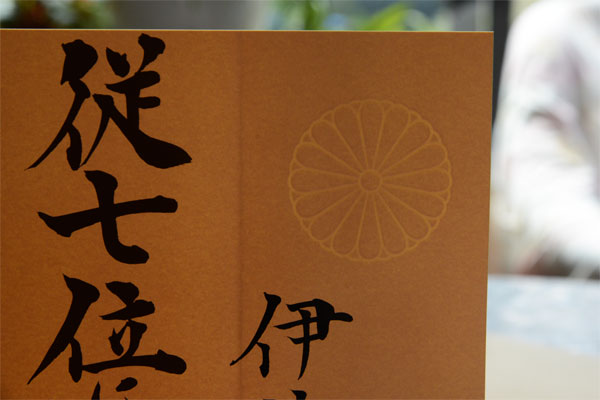 伊
従七位